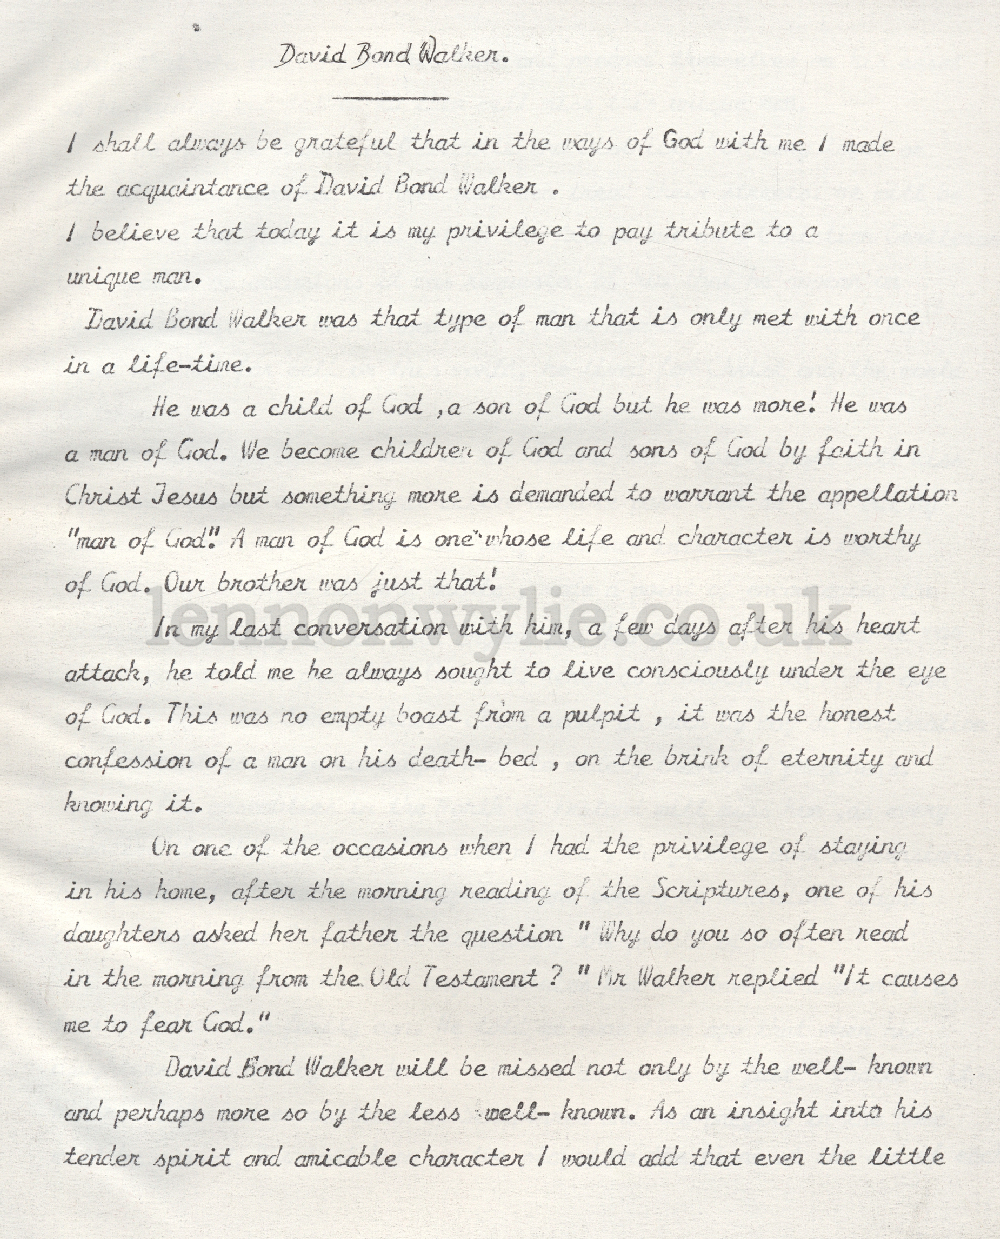 David Bond Walker.
I shall always be grateful that in the ways of God with me I made
the acquaintance of David Bond Walker .
I believe that today it is my privilege to pay tribute to a
unique man.
David Bond Walker was that type of man that is only met with once
in a life-time.
He was a child of God ,a son of God but he was more! He was
a man of God. We become children of God and sons of God by faith in
Christ Jesus but something more is demanded to warrant the appellation
"man of God". A man of God is one whose life and character is worthy
of God. Our brother was just that!
lennonwylie.co.uk
In my last conversation with him, a few days after his heart
attack, he told me he always sought to live consciously under the eye
of God. This was no empty boast from a pulpit , it was the honest
confession of a man on his death- bed , on the brink of eternity and
knowing it.
On one of the occasions when I had the privilege of staying
in his home, after the morning reading of the Scriptures, one of his
daughters asked her father the question " Why do you so often read
in the morning from the Old Testament ? " Mr Walker replied "It causes
me to fear God."
David Bond Walker will be missed not only by the well- known
and perhaps more so by the less well- known. As an insight into his
tender spirit and amicable character I would add that even the little